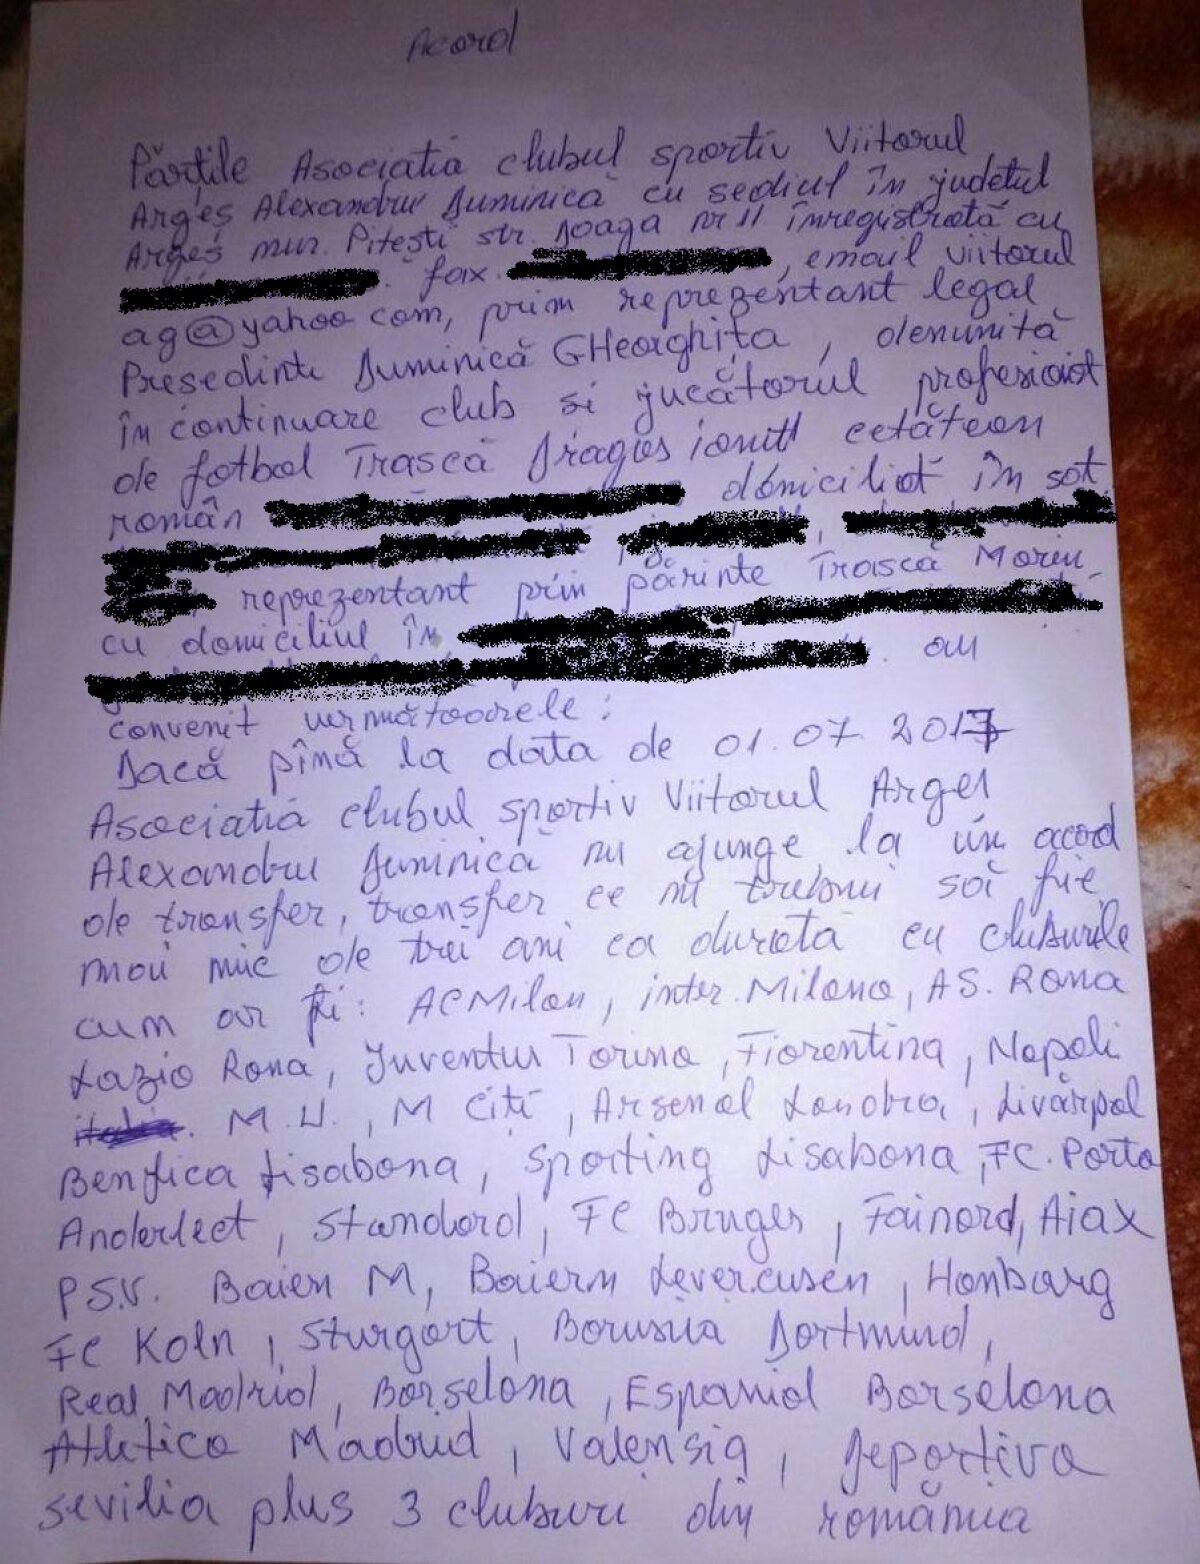 Acord
Părțile Asociatia clubul sportiv Viitorul
Argeș Alexandru Duminică cu sediul în județul
Argeș mun. Pitești str. Doaga nr 11 înregistrată cu
fax , email viitorul
ag@yahoo com, prim reprezentant legal
Presedinte Duminică GHeorghița, denunită
în continuare club si jucătorul profesionist
de fotbal Trască Dragos ionut cetătean
român domiciliat în sat
,
reprezentant prin părinte Trască Marin
cu domiciliul în
. au
convenit următoarele:
Dacă pînă la data de 01.07.2017
Asociatia clubul sportiv Viitorul Arges
Alexandru Duminica nu ajunge la un acord
de transfer, transfer ce nu trebui să fie
mai mic de trei ani ca durată cu cluburile
cum ar fi: AC Milan, inter Milano, AS. Roma
Lazio Roma, Juventus Torino, Fiorentina, Napoli
M.U., M Citi, Arsenal Londra, Livărpol
Benfica Lisabona, Sporting Lisabona, FC. Porto
Anderlect, Standard, FC Bruges, Fainord, Aiax
P.S.V. Baien M, Baiern Levercusen, Hamburg
FC Koln, Sturgart, Borusia Dortmund,
Real Madrid, Barselona, Espaniol Barselona
Atletico Madrid, Valensia, Deportiva
sevilia plus 3 cluburi din românia